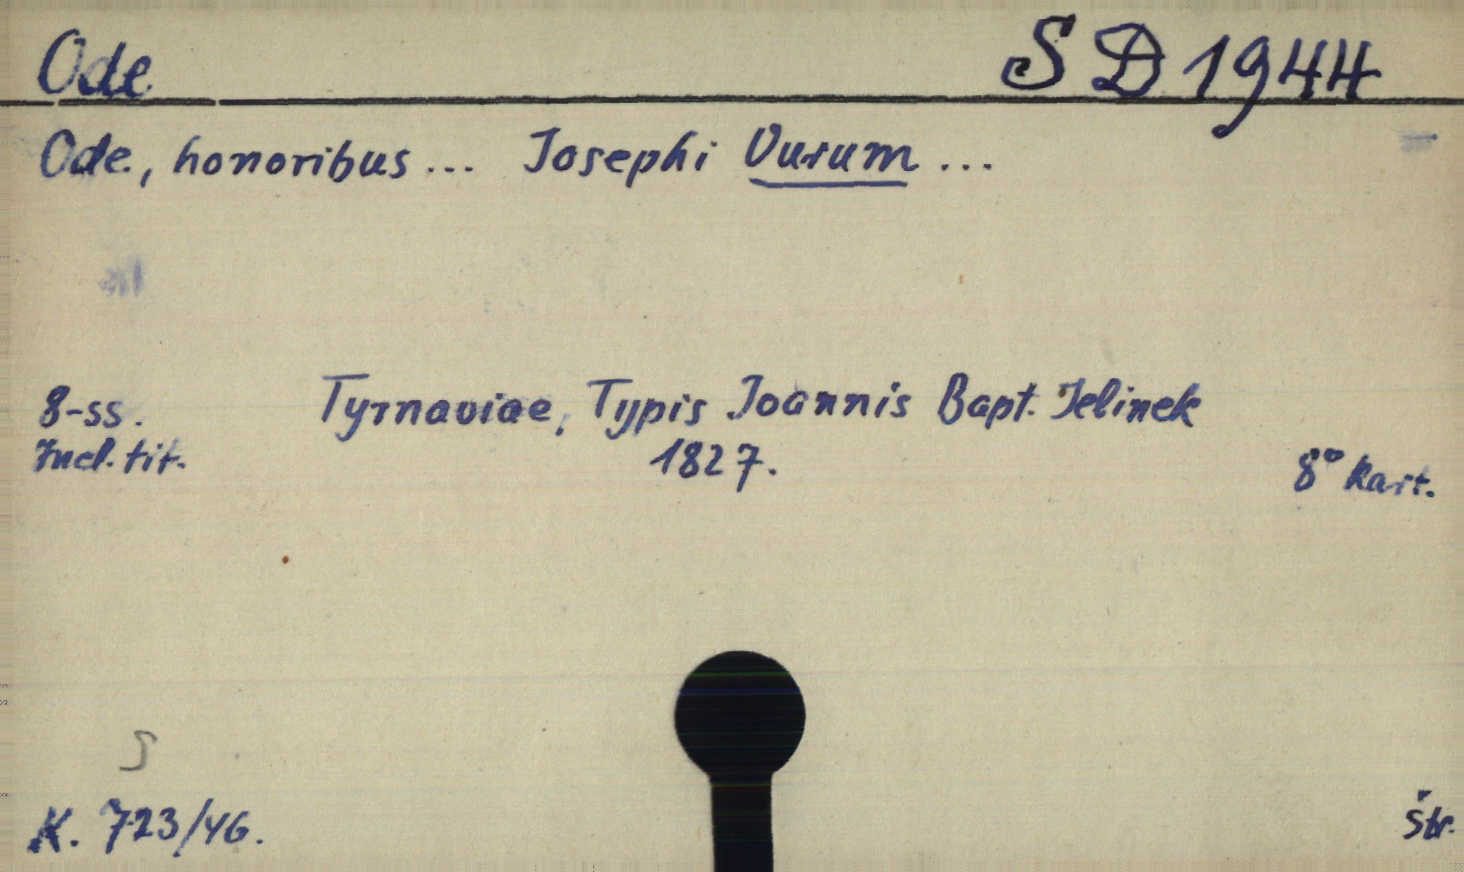 Ode SD 1944
Ode, honoribus... Josephi Vurum...
8-ss. Tyrnaviae, Typis Joannis Bapt. Jelinek
Incl. tit. 1827. 8° kart.
S
K. 723/46. Štr.